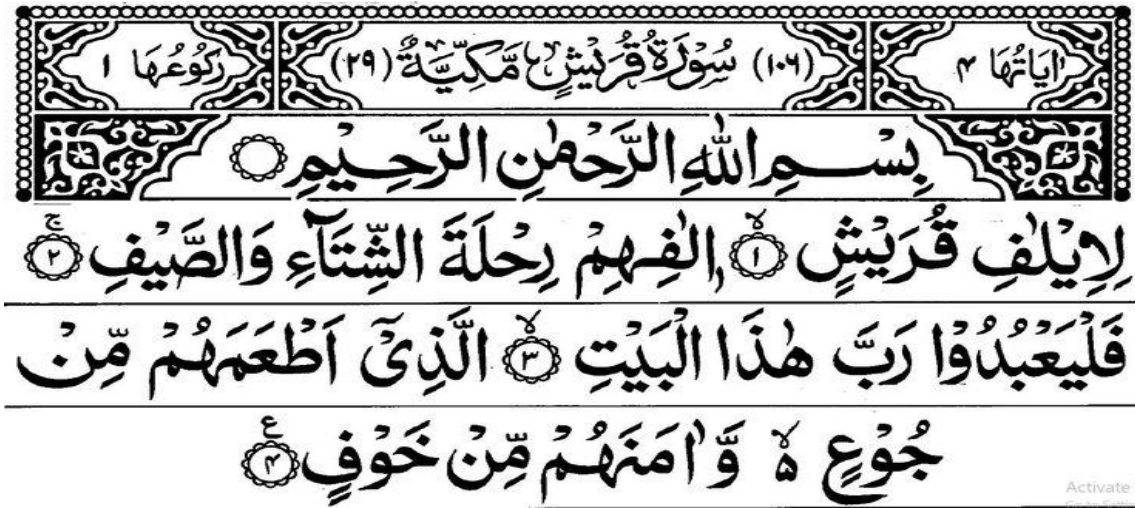 اٰيَاتُهَا ۴ (۱۰۶) سُوْرَةُ قُرَيْشٍ مَّكِّيَّةٌ (۲۹) رُكُوْعُهَا ۱
بِسْمِ اللّٰهِ الرَّحْمٰنِ الرَّحِيْمِ
لِاِيْلٰفِ قُرَيْشٍ ۙ‏﴿۱﴾ اٖلٰفِهِمْ رِحْلَةَ الشِّتَآءِ وَالصَّيْفِ ۚ‏﴿۲﴾
فَلْيَعْبُدُوْا رَبَّ هٰذَا الْبَيْتِ ۙ‏﴿۳﴾ الَّذِىْۤ اَطْعَمَهُمْ مِّنْ
جُوْعٍ ۙ۬ ۵ وَّاٰمَنَهُمْ مِّنْ خَوْفٍ ‏﴿۴﴾ ع
Activate